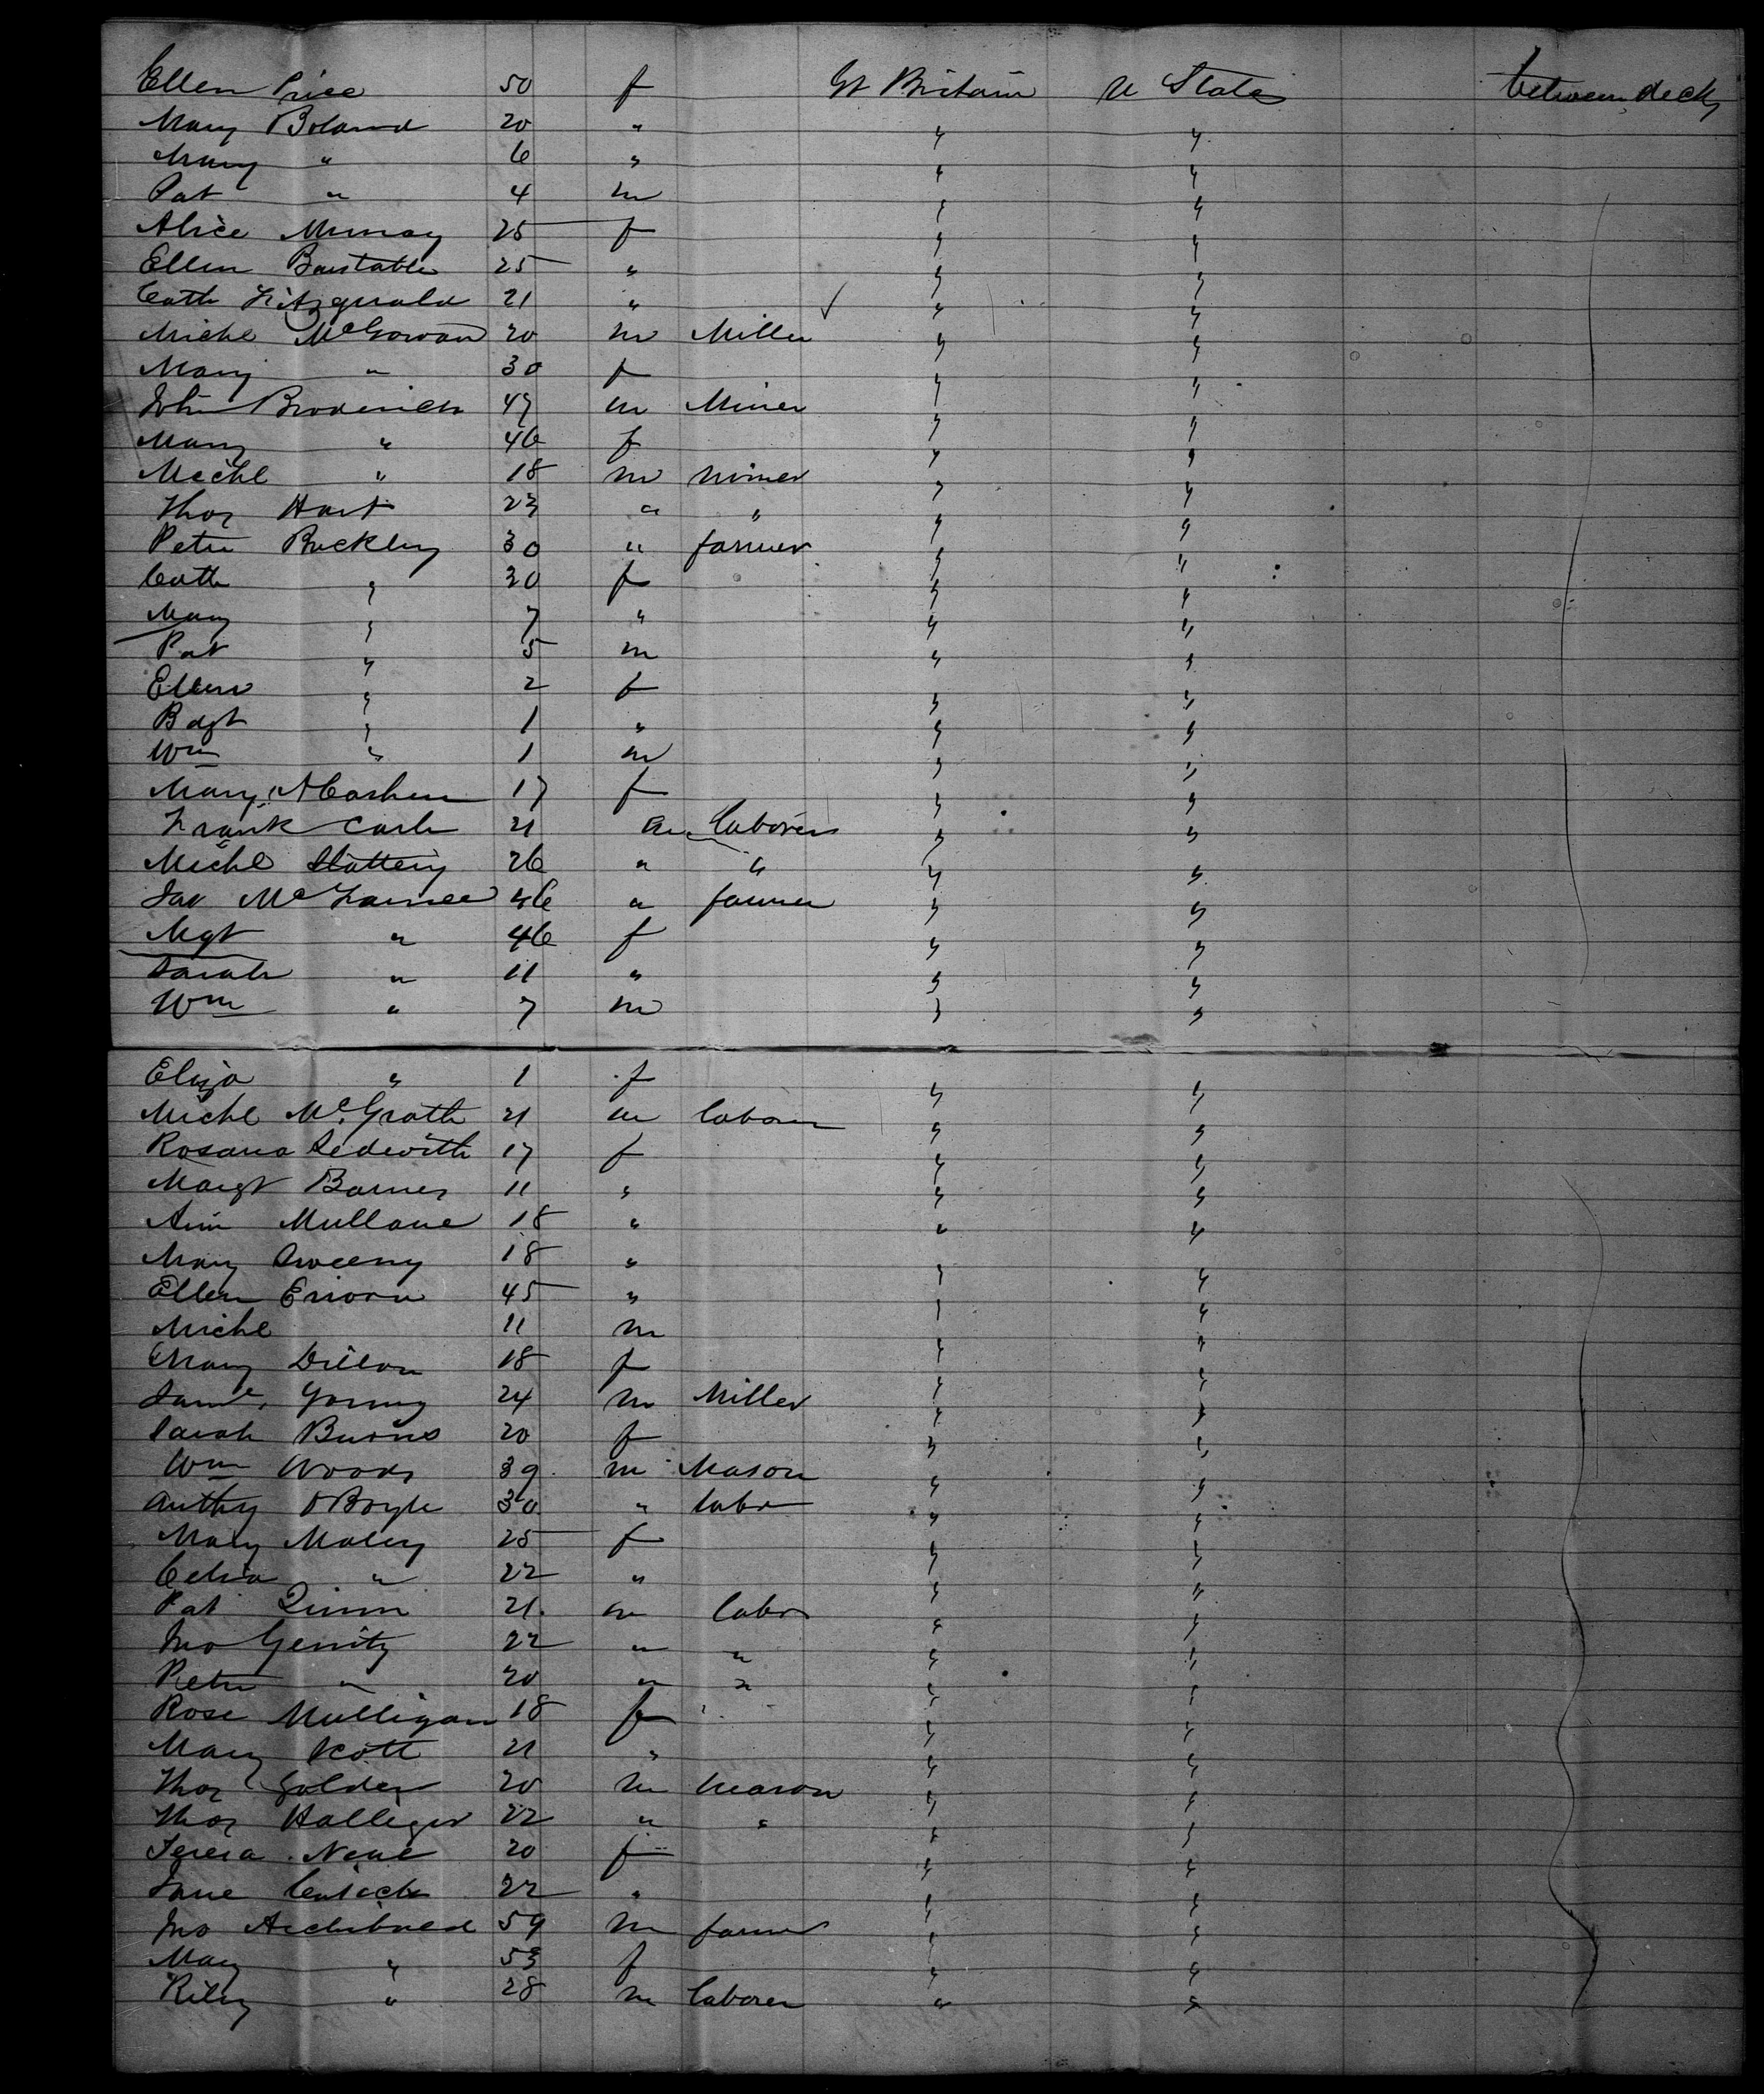 Ellen Price 50 f Gt Britain U States between decks
Mary Boland 20 " " "
Mary " 6 " " "
Pat " 4 m " "
Alice Murray 25 f " "
Ellen Bastable 25 " " "
Cath Fitzgerald 21 " " "
Michl McGowan 20 m Miller " "
Mary " 30 f " "
John Broderick 47 m Miner " "
Mary " 46 f " "
Michl " 18 m miner " "
Thos Hart 23 " " " "
Peter Buckley 30 " farmer " "
Cath " 30 f " "
Mary " 7 " " "
Pat " 5 m " "
Ellen " 2 f " "
Bdgt " 1 " " "
Wm " 1 m " "
Mary 17 f " "
Frank 21 m laborer " "
Michl Slattery 26 " " " "
Jas 46 " farmer " "
Mgt " 46 f " "
Sarah " 11 " " "
Wm " 7 m " "
Eliza " 1 f " "
Michl McGrath 21 m laborer " "
Rosana Ledewith 17 f " "
Margt Barnes 11 " " "
Ann Mullane 18 " " "
Mary Sweeny 18 " " "
Ellen 45 " " "
Michl 11 m " "
Mary Dillon 18 f " "
Saml. Young 24 m Miller " "
Sarah Burns 20 f " "
Wm Woods 39 m Mason " "
Anthy OBoyle 30 " labr " "
Mary Maley 25 f " "
Celia " 22 " " "
Pat Quinn 21 m labr " "
Jno Gerrity 22 " " " "
Peter " 20 " " " "
Rose Mulligan 18 f " "
Mary Scott 21 " " "
Thos Golden 20 m mason " "
Thos Halliger 22 " " " "
Teresa Neal 20 f " "
Jane 22 " " "
Jno Archibald 59 m farmer " "
Mary " 53 f " "
Riley " 28 m laborer " "